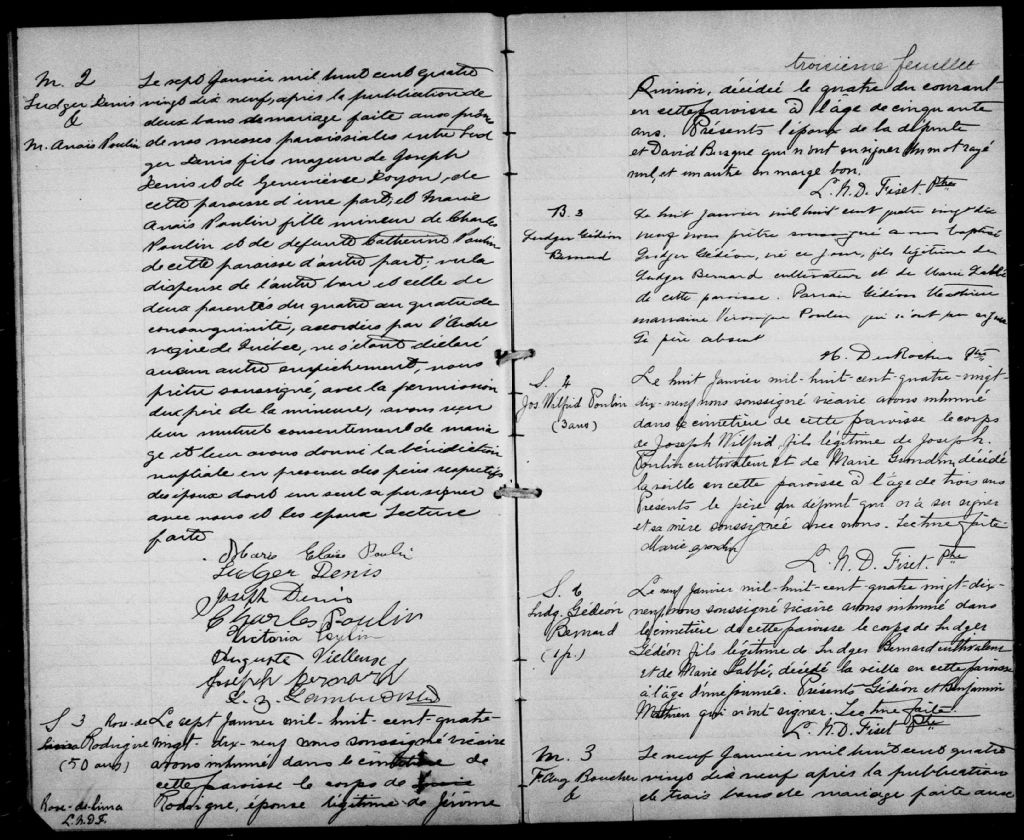 M. 2
Ludger Denis
&
M. Anaïs Poulin
Le sept Janvier mil huit cent quatre
vingt dix neuf, après la publication de
deux bans de mariage faite aux prônes
de nos messes paroissiales entre Lud
ger Denis fils majeur de Joseph
Denis et de Geneviève Doyon, de
cette paroisse d'une part, et Marie
Anaïs Poulin fille mineur de Charles
Poulin et de défunte Catherine Poulin
de cette paroisse d'autre part; vu la
dispense de l'autre ban et celle de
deux parentés du quatre au quatre de
consanguinité, accordées par l'Arche
vêque de Québec, ne s'étant déclaré
aucun autre empêchement, nous
prêtre soussigné, avec la permission
du père de la mineure, avons reçu
leur mutuel consentement de maria
ge et leur avons donné la bénédiction
nuptiale en présence des pères respectifs
des époux dont un seul a pu signer
avec nous et les époux Lecture
faite
Marie Poulin
Ludger Denis
Joseph Denis
Charles Poulin
Victoria Poulin
Auguste Vielleux
Joseph
S 3 Rose-de
Rodrigue
(50 ans)
Le sept Janvier mil-huit-cent-quatre-
vingt-dix-neuf nous soussigné vicaire
avons inhumé dans le cimetière de
cette paroisse le corps de
Rodrigue, épouse légitime de Jérôme
Rose-de-lima
L.N.D.F.
troisième feuillet
Quirion, décédée le quatre du courant
en cette paroisse à l'âge de cinquante
ans. Présents l'époux de la défunte
et David Busque qui n'ont su signer Un mot rayé
nul, et un autre en marge bon.
L. N. D. Fiset. Ptre
B. 3
Ludger Gédéon
Bernard
Le huit janvier mil huit cent quatre vingt dix
neuf nous prêtre soussigné avons baptisé
Ludger Gédéon, né ce jour, fils légitime de
Ludger Bernard cultivateur et de Marie Labbé
de cette paroisse. Parrain Gédéon Mathieu
marraine Véronique Poulin qui n'ont su signer
Le père absent
H. DesRoches Ptre
S. 4
Jos. Wilfrid Poulin
(3 ans)
Le huit Janvier mil-huit-cent-quatre-vingt
dix-neuf nous soussigné vicaire avons inhumé
dans le cimetière de cette paroisse le corps
de Joseph Wilfrid, fils légitime de Joseph
Poulin cultivateur et de Marie Grondin, décédé
la veille en cette paroisse à l'âge de trois ans
Présents le père du défunt qui n'a su signer
et sa mère soussignée avec nous. Lecture faite
Marie grondin
L. N. D. Fiset. Ptre
S.
Ludg. Gédéon
Bernard
(1 j.)
Le neuf Janvier mil-huit-cent-quatre vingt-dix-
neuf nous soussigné vicaire avons inhumé dans
le cimetière de cette paroisse le corps de Ludger
Gédéon fils légitime de Ludger Bernard cultivateur
et de Marie Labbé, décédé la veille en cette paroisse
à l'âge d'une journée. Présents Gédéon et Benjamin
Mathieu qui n'ont signer. Lecture faite.
L. N. D. Fiset Ptre
M. 3
F. Aug Boucher
&
Le neuf Janvier mil huit cent quatre
vingt dix neuf après la publication
de trois bans de mariage faite aux